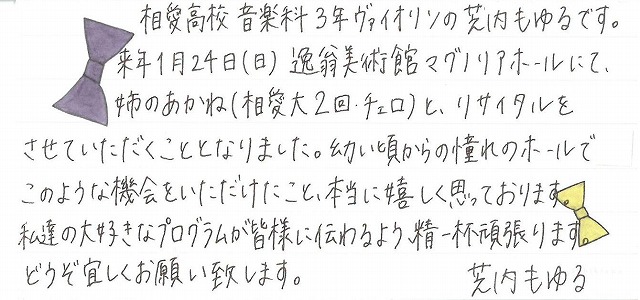 相愛高校 音楽科3年ヴァイオリンの芝内もゆるです。
来年1月24日(日) 逸翁美術館マグノリアホールにて、
姉のあかね(相愛大2回・チェロ)と、リサイタルを
させていただくこととなりました。幼い頃からの憧れのホールで
このような機会をいただけたこと、本当に嬉しく思っております。
私達の大好きなプログラムが皆様に伝わるよう、精一杯頑張ります。
どうぞ宜しくお願い致します。 芝内もゆる